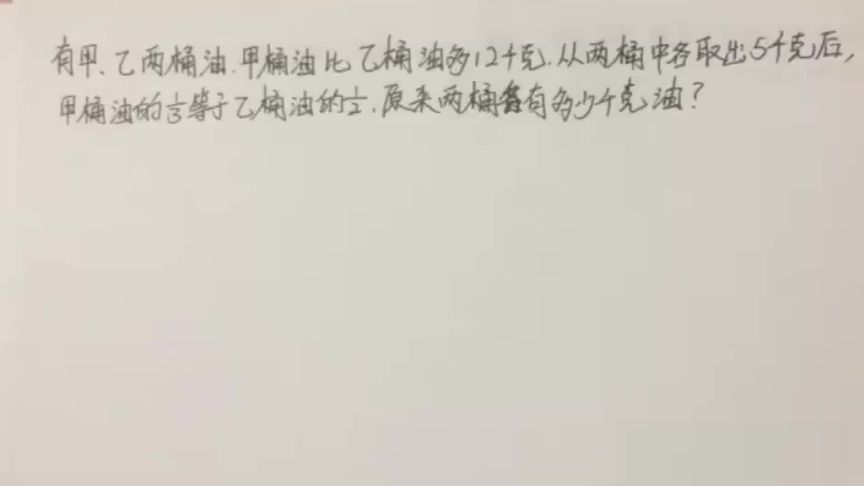 有甲、乙两桶油.甲桶油比乙桶油多12千克.从两桶中各取出5千克后,
甲桶油的1/3等于乙桶油的1/2.原来两桶各有多少千克油?